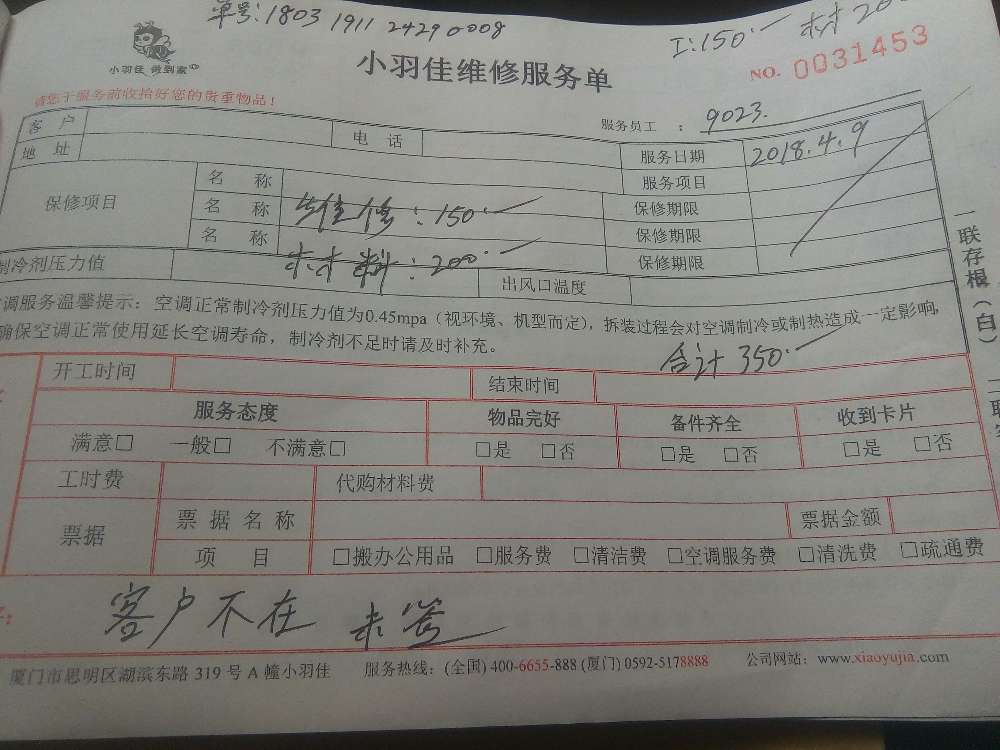 单号:1803 1911 2429 0008
工:150.一 材 20
小羽佳 做到家
小羽佳维修服务单
NO. 0031453
请您于服务前收拾好您的贵重物品!
服务员工 : 9023.
客 户 电 话 服务日期 2018.4.9
地 址 服务项目
保修项目 名 称 保修期限
名 称 修:150.一 保修期限
名 称 材料:200.一 保修期限
制冷剂压力值 出风口温度
调服务温馨提示: 空调正常制冷剂压力值为0.45mpa(视环境、机型而定),拆装过程会对空调制冷或制热造成一定影响,
确保空调正常使用延长空调寿命,制冷剂不足时请及时补充。
合计 350.一
开工时间 结束时间
服务态度 物品完好 备件齐全 收到卡片
满意□ 一般□ 不满意□ □是 □否 □是 □否 □是 □否
工时费 代购材料费
票据 票据名称 票据金额
项 目 □搬办公用品 □服务费 □清洁费 □空调服务费 □清洗费 □疏通费
客户不在 未签
厦门市思明区湖滨东路 319 号 A 幢小羽佳 服务热线:(全国) 400-6655-888 (厦门) 0592-5178888 公司网站:www.xiaoyujia.com
一联存根(白)
二联